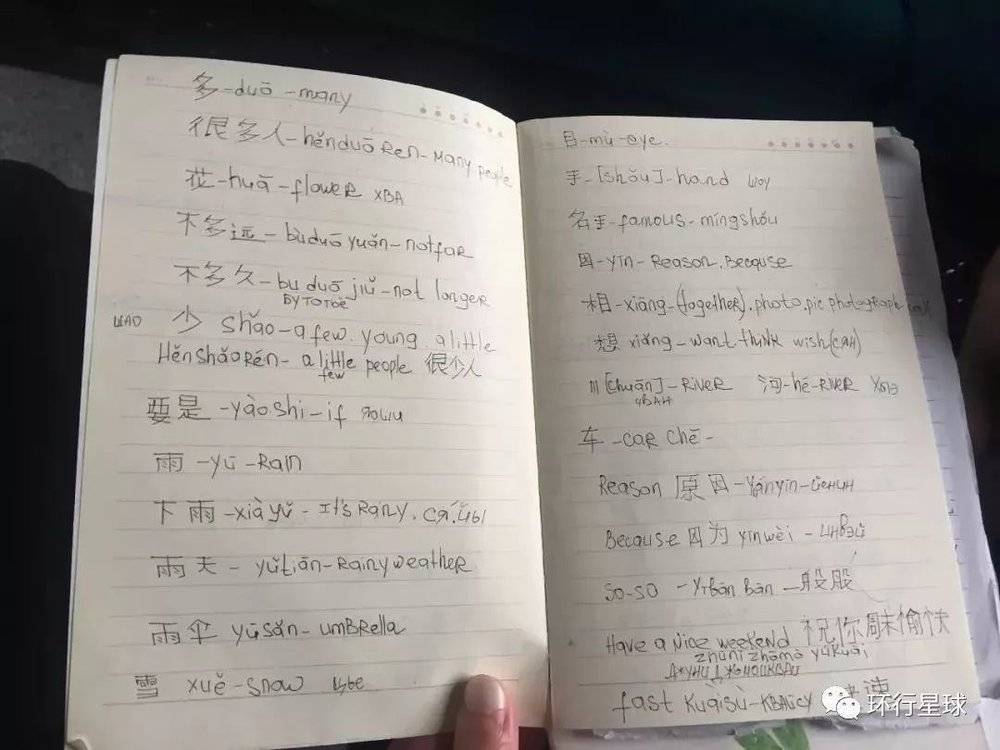 多-duō-many
很多人-hěnduōRen-Many people
花-huā-floweR XBA
不多远-bùduōyuǎn-notfar
不多久-bu duō jiǔ-not longeR
少 shǎo-a few.young.a little
HěnShǎoRén-a little people 很少人
few
要是-yàoshi-if
雨-yǔ-Rain
下雨-xiàyǔ-It's Rainy.
雨天-yǔtiān-Rainy weatheR
雨伞 yǔsǎn-umBRella
雪 xuě-snow
目-mù-eye.
手-[shǒu]-hand
名手-famous-míngshǒu
因-yīn-Reason.Because
相-xiāng-(together).photo.pic photograph
想 xiǎng-want think wish(CAH)
川[chuān]-RiveR 河-hé-RiveR
ЧВАН
车-caR chē-
Reason 原因-Yányīn-
Because 因为 yīnwèi-
So-So-Yībān bān 一般般
Have a Nice weekend 祝你周末愉快
zhùnǐ zhōmò yúkuài
fast Kuàisù-КВАЙСУ 速
环行星球